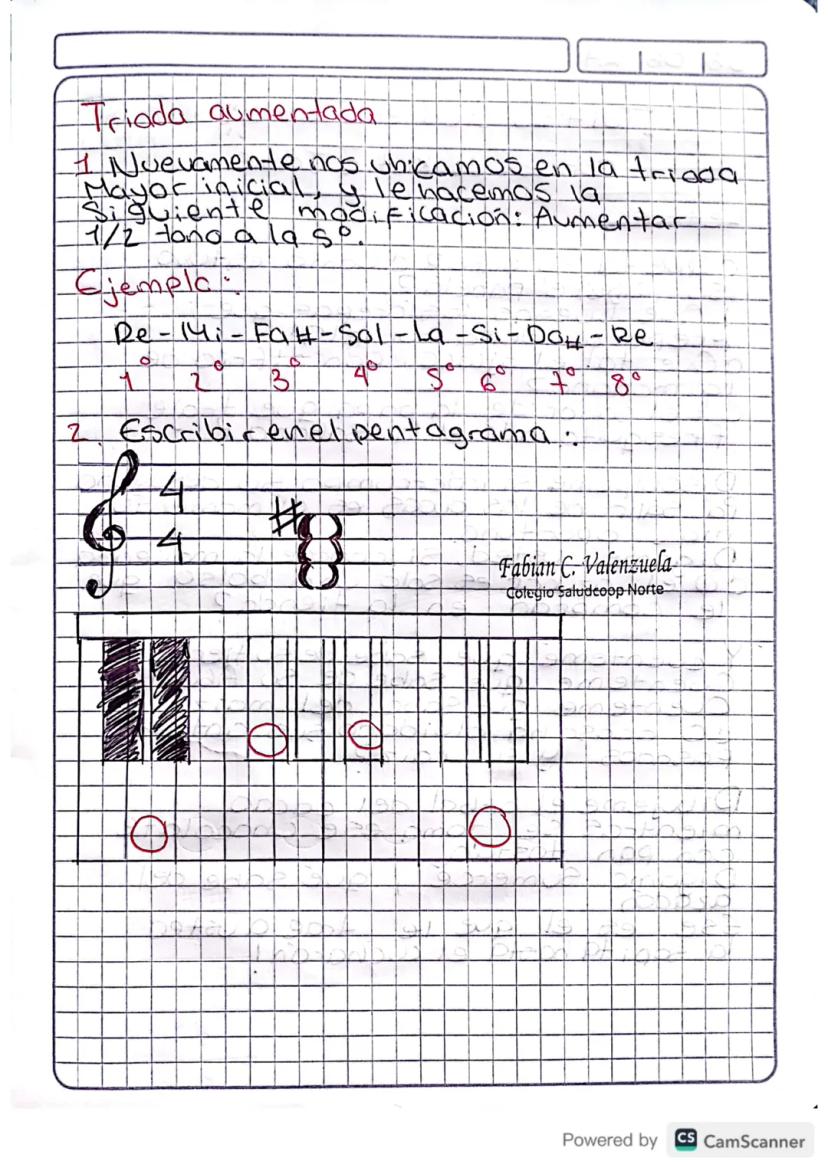 Triada aumentada
1 Nuevamente nos ubicamos en la triada
Mayor inicial, y le hacemos la
Siguiente modificación: Aumentar
1/2 tono a la 5º.
Ejemplo:
Re - Mi - Fa# - Sol - La - Si - Do# - Re
1º 2º 3º 4º 5º 6º 7º 8º
2. Escribir en el pentagrama:
4
4
#
Fabian C. Valenzuela
Colegio Saludcoop Norte
Powered by CS CamScanner